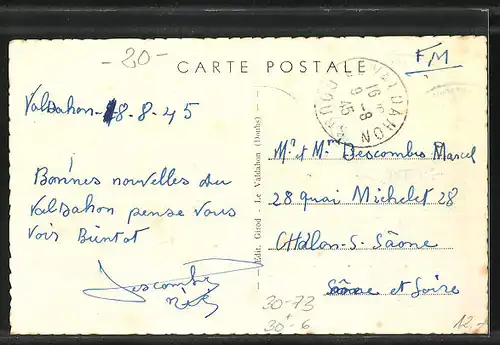 -20-
FM
CARTE POSTALE
Valdahon - 8-8-45
Bonnes nouvelles du
Valdahon pense vous
Voir Bientot
Descombes
Mr et Mme Descombes Marcel
28 quai Michelet 28
Châlon-s-Saône
Saône et Loire
Edit. Girod - Le Valdahon (Doubs)
VALDAHON
16 H
9 -8
45
DOUBS
30-73
30+-6
12.-